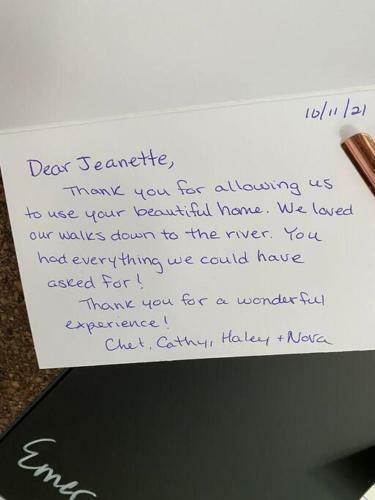 10/11/21
Dear Jeanette,
Thank you for allowing us
to use your beautiful home. We loved
our walks down to the river. You
had everything we could have
asked for!
Thank you for a wonderful
experience!
Chet, Cathy, Haley + Nova
Emer